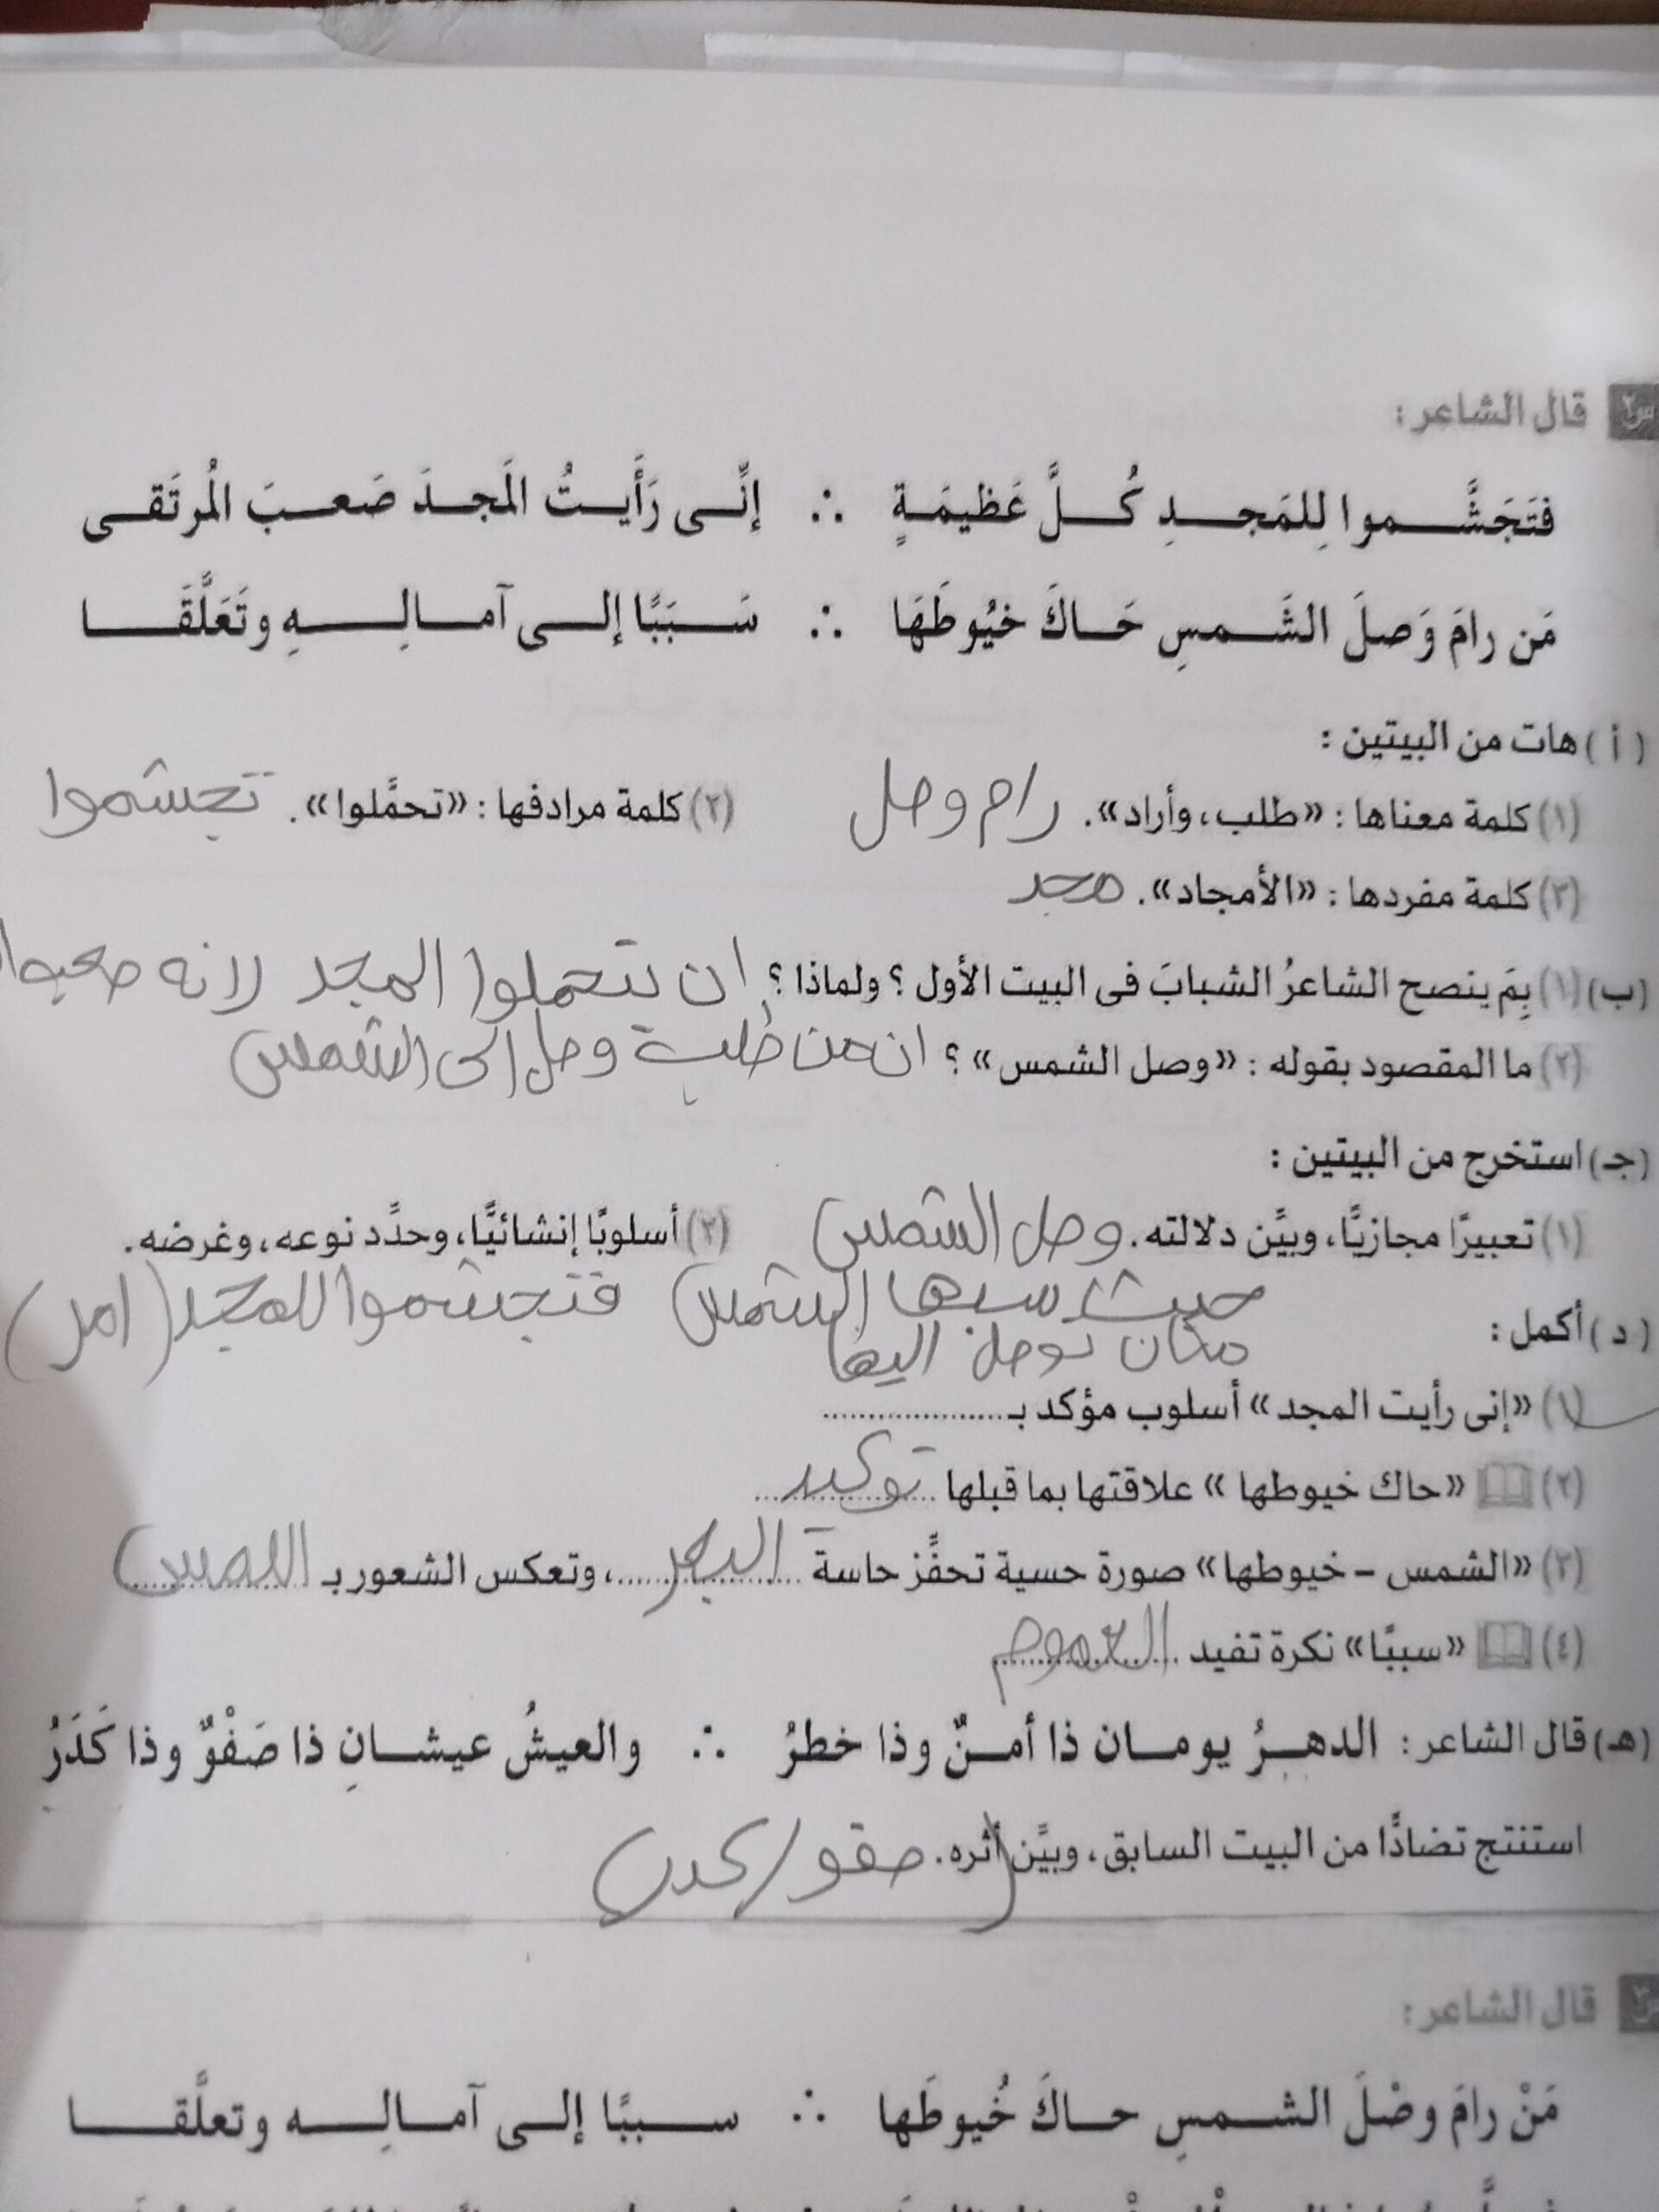 س٢ قال الشاعر :
فَتَجَشَّموا لِلمَجدِ كُلَّ عَظيمَةٍ ∴ إنِّى رَأَيتُ المَجدَ صَعبَ المُرتَقى
مَن رامَ وَصلَ الشَمسِ حَاكَ خيُوطَهَا ∴ سَبَبًا إلى آمالِهِ وتَعَلَّقَا
( أ ) هات من البيتين :
(١) كلمة معناها : «طلب، وأراد». رام وصل (٢) كلمة مرادفها : «تحمَّلوا». تجشموا
(٣) كلمة مفردها : «الأمجاد». مجد
(ب) (١) بِمَ ينصح الشاعرُ الشبابَ فى البيت الأول ؟ ولماذا ؟ ان يتحملوا المجد لانه
(٢) ما المقصود بقوله : «وصل الشمس» ؟ ان من طلب وصل إلى الشمس
(جـ) استخرج من البيتين :
(١) تعبيرًا مجازيًّا، وبيِّن دلالته. وصل الشمس (٢) أسلوبًا إنشائيًّا، وحدِّد نوعه، وغرضه.
حيث الشمس فتجشموا للمجد (امر)
مكان نوصل اليها
( د ) أكمل :
(١) «إنى رأيت المجد» أسلوب مؤكد بـ ....................
(٢) «حاك خيوطها» علاقتها بما قبلها توكيد
(٣) «الشمس – خيوطها» صورة حسية تحفِّز حاسة البصر ، وتعكس الشعور بـ اللمس
(٤) «سببًا» نكرة تفيد العموم
(هـ) قال الشاعر : الدهرُ يومان ذا أمنٌ وذا خطرُ ∴ والعيشُ عيشانِ ذا صَفْوٌ وذا كَدَرُ
استنتج تضادًّا من البيت السابق، وبيِّن أثره. صفو / كدر
قال الشاعر :
مَنْ رامَ وصْلَ الشمسِ حاكَ خُيوطَها ∴ سببًا إلى آمالِه وتعلَّقا